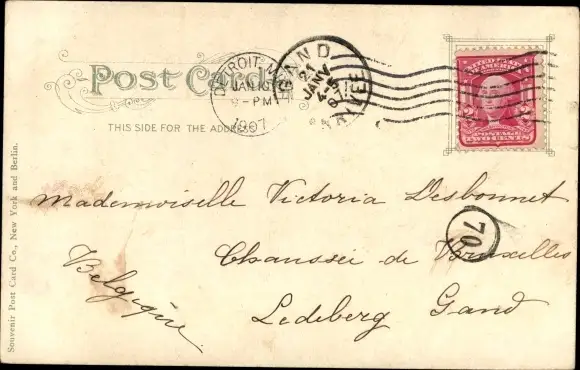 Post Card
THIS SIDE FOR THE ADDRESS
DETROIT, M
JAN 10
9-PM
1907
GAND
21
JANV
ARRIVEE
UNITED STATES
OF AMERICA
POSTAGE
TWO CENTS
Mademoiselle Victoria Desbonnet
70
Chaussée de Bruxelles
Ledeberg Gand
Belgique
Souvenir Post Card Co., New York and Berlin.